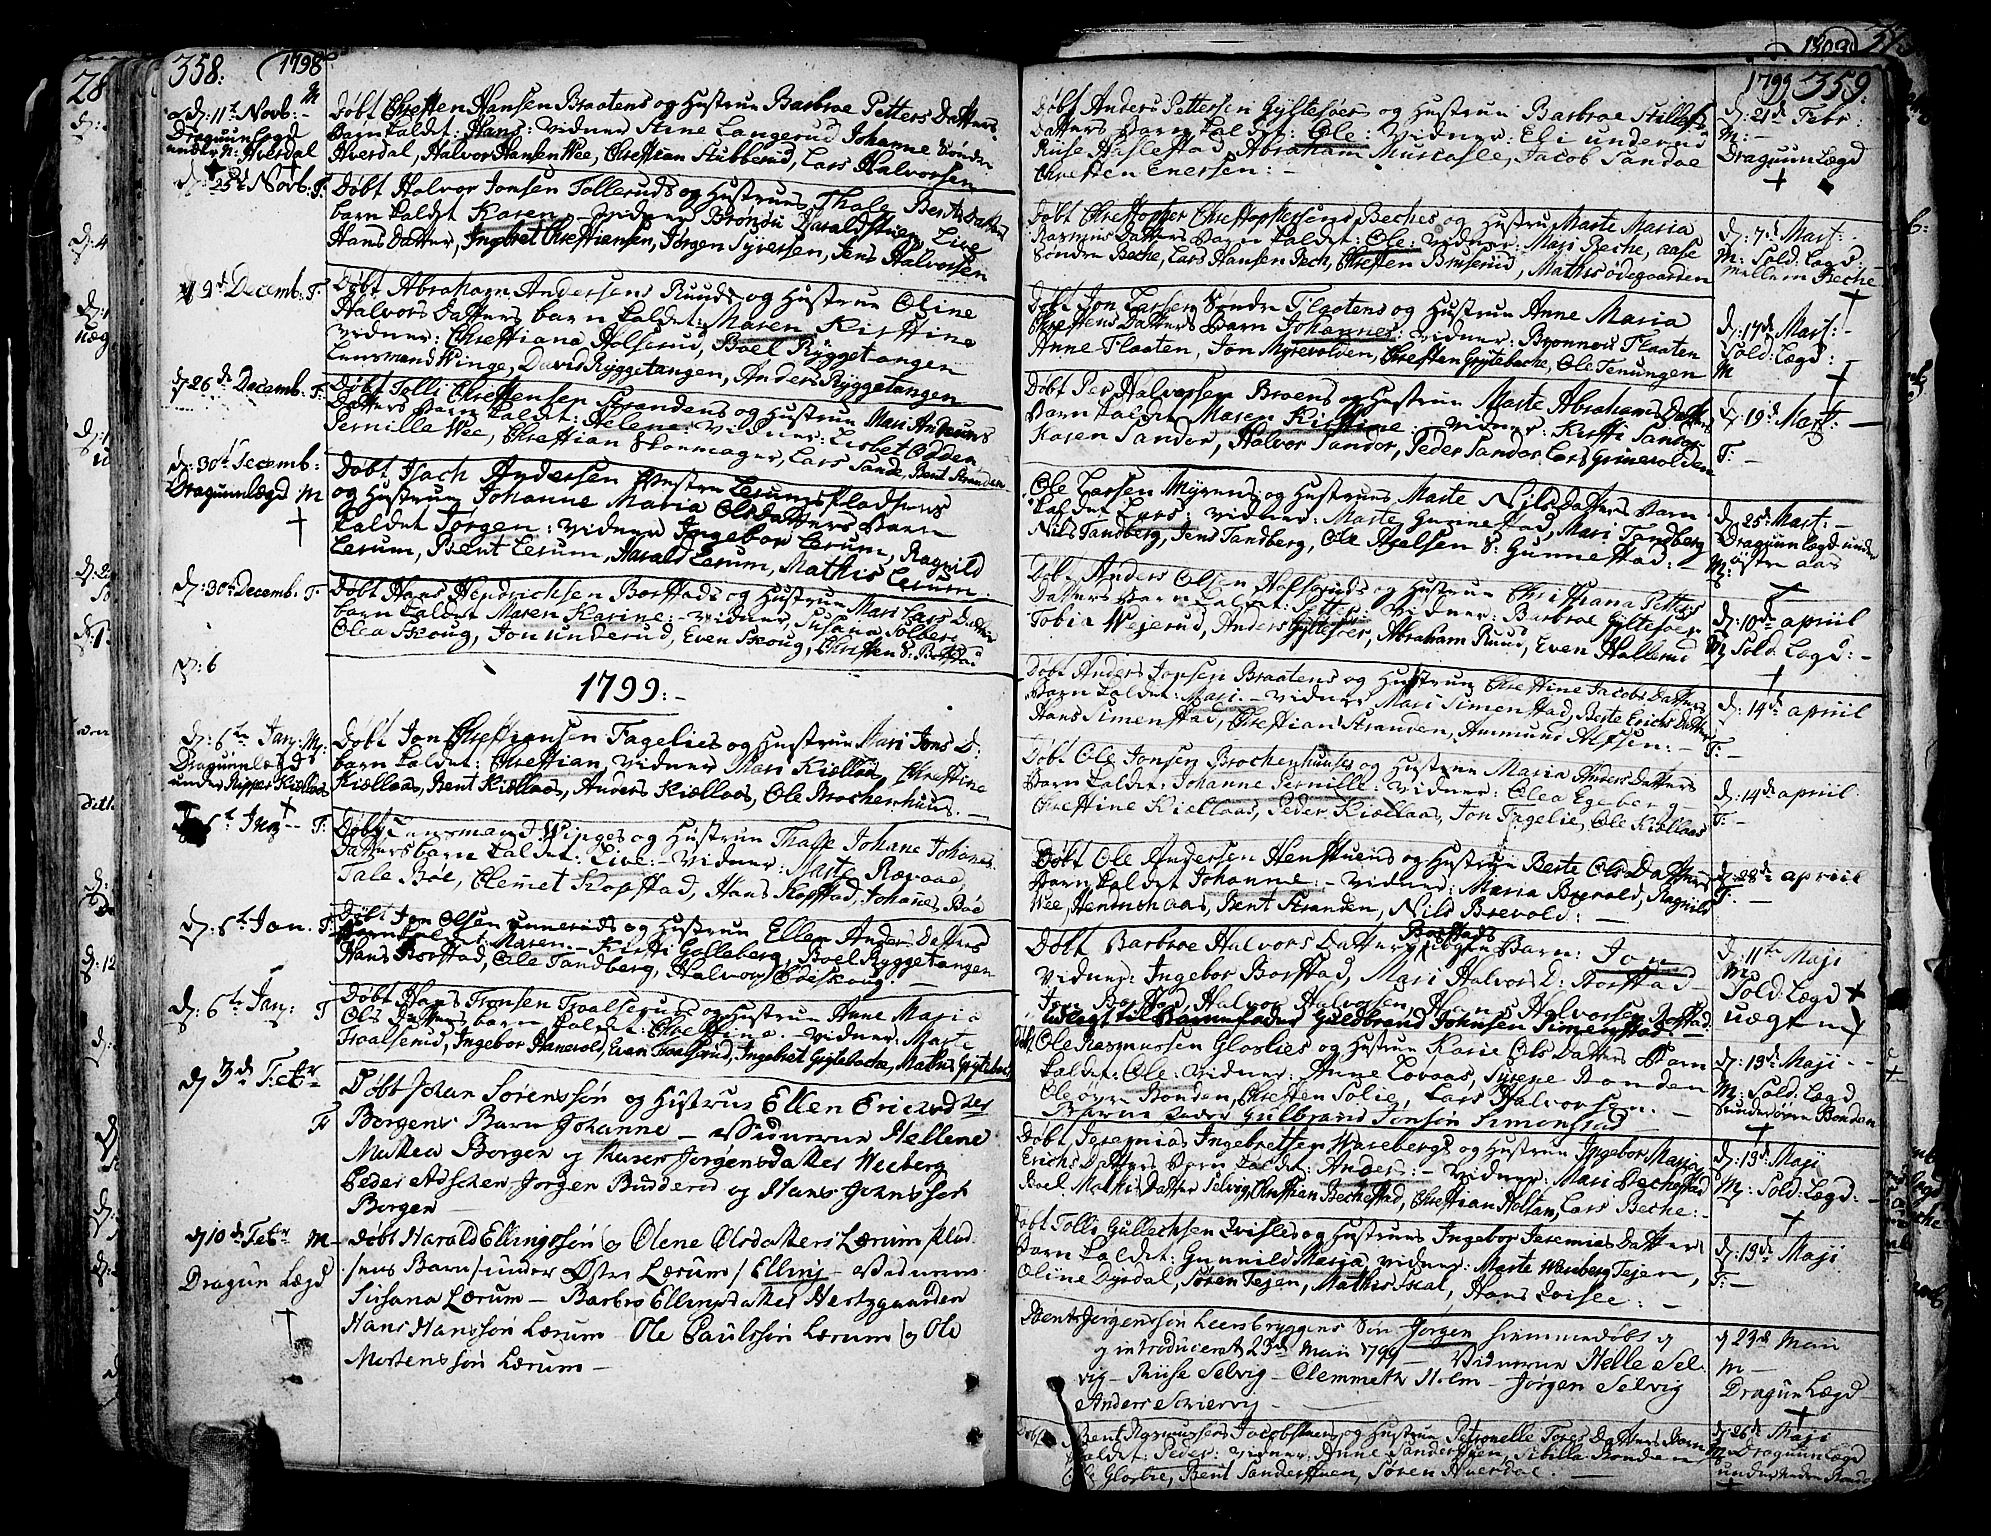 358: 1798
d: 11te Novb: - M
Dragunlægd
under N: Hverdal
Døbt Chresten Hansen Braatens og Hustrun Barbroe Petters Datters
Barn kaldet: Hans: vidner Stine Langerud, Johanne Søndre
Hverdal, Halvor Hansen Wee, Christian Stubberud, Lars Halvorsen
d: 25de Novb: F:
Døbt Halvor Jonsen Tolleruds og Hustruns Thale Berths Datters
barn kaldet Karen - vidner Brønou Haraldstuen, Live
Hans Datter, Ingebret Christiansen, Jørgen Syversen, Jens Halvorsen
d 9de Decemb: F
Døbt Abraham Andersens Ruuds og Hustrun Oline
Halvors Datters barn kaldet: Maren Kirstine
vidner: Christiana Holserud, Boel Ryggetangen
Lensmand Winge, David Ryggetangen, Anders Ryggetangen
d 26de Decemb: F:
Døbt Tolli Christensen Strandens og Hustrun Mari Andersens
Datters Barn kaldet: Helene: vidner: Lisbet Odden
Pernille Wee, Christian Skomager, Lars Sande, Bent Stranden
d: 30te Decemb:
Dragunlægd M
Døbt Isach Andersen Østre Lerums Pladsens
og Hustrun Johanne Maria Olsdatters Barn
kaldet Jørgen: vidner Ingebor Lerum, Ragnild
Lerum, Bent Lerum, Harald Lerum, Mathis Lerum
d: 30te Decemb: F:
Døbt Hans Hendrichsen Borstads og Hustrun Mari Lars Datters
barn kaldet Maren Karine: - vidner, Susana Solberg
Olea Skoug, Jon underud, Even Skoug, Christen S: Borstad
d: 6
1799: -
d: 6te Jan: M:
Dragunlægd
under Nipper Kiøllaas
Døbt Jon Christiansen Fagelies og Hustrun Mari Jons D:
barn kaldet: Christian, vidner Mari Kiøllaas, Christine
Kiøllaas, Bent Kiøllaas, Anders Kiøllaas, Ole Brochenhuus. -
d 6te Jan - F:
Døbt Lensmand Winges og Hustrun Thalle Johane Johanes
Datters barn kaldet: Live: - vidner: Marte Rævaae,
Tale Bøe, Clemet Kopstad, Hans Kopstad, Johanes Bøe
d: 6te Jan. F:
Døbt Jon Olsen underuds og Hustrun Ellen Anders Datters
Barn kaldet: Maren - Kirsti Golleberg, Boel Ryggetangen
Hans Borstad, Ole Tandberg, Halvor Edeskoug. -
d: 6te Jan: F
Døbt Hans Tronsen Traalseruds og Hustrun Anne Maria
Ols Datters barn kaldet: Christine. vidner: Marte
Traalserud, Ingebor Hanevold, Even Traalserud, Ingebret Gyltebeche, Mathis Gyltebeche
d 3de Febr
F
Døbt Johan Sørenssøn og Hustrus Ellen Ericsdatter
Borgens Barn Johanne - Vidnerne Hellene
Mathea Borgen og Karen Jørgensdatter Weeberg
Peder Adschen Jørgen Budderud og Hans Johnssøn
Borgen -
d 10de Febr M -
Dragun Lægd
Døbt Harald Ellingssøn og Olene Olsdatters Lærum Plad
sens Barn / under Østre Lærum / Elling - Vidnerne
Susana Lærum - Barbro Ellingsdatter Hertzgaarden
Hans Hanssøn Lærum - Ole Paulssøn Lærum og Ole
Mortenssøn Lærum -
1799 359:
Døbt Anders Pettersen Gyltesøes og Hustrun Barbroe Stillefs
Datters Barn kaldet: Ole: vidner: Eli underud
Riise Haslestad, Abraham Muscasle, Jacob Sandae
Christen Enersen: -
d: 21de Febr:
M: -
Dragunlægd
Døbt Christopher Christophersens Beches og Hustrun Marte Maria
Rasmus Datters Barn kaldet: Ole: vidner: Mari Beche, Aase
Søndre Beche, Lars Hansen Pech, Christen Bruserud, Mathis Ødegaarden
d: 7de Mart:
M: Sold: Lægd
mellem Beche
Døbt Jon Larsen Søndre Flaatens og Hustrun Anne Maria
Christens Datters Barn Johannes: vidner: Brønnou Flaaten
Anne Flaaten, Jon Myrevolden, Christen Gyltebeche, Ole Tenungen
d: 17de Mart: -
Sold: Lægd:
M
Døbt Per Halvorsen Broens og Hustrun Marte Abrahams Datters
Barn kaldet Maren Kirstine - vidner: Kirsti Sandor
Karen Sandor, Halvor Sandor, Peder Sandor, Lars Grinevolden
d: 19de Mart: -
F: -
Ole Larsen Myrens og Hustruns Marte Nils Datters Barn
kaldet Lars: vidner: Marte Gunnestad, Mari Tandberg
Nils Tandberg, Jens Tandberg, Ole Axelsen S: Gunnestad: -
d: 25de Mart: -
Dragunlægd under
M: østre aas
Døbt Anders Olsen Holseruds og Hustrun Christiana Petters
Datters Barn kaldet: Petter: vidner: Barbroe Gyltesøe
Tobia Wejerud, Anders Gyltesøe, Abraham Ruud, Even Hallerud
d: 10de april
M Sold: Lægd: -
Døbt Anders Jonsen Braatens og Hustrun Christine Jacobs Datters
Barn kaldet: Mari - vidner: Mari Simenstad, Berte Erichs Datter
Hans Simenstad, Christian Stranden, Ammund Alfsen: -
d: 14de april
F: -
Døbt Ole Jonsen Brochenhuuses og Hustrun Maria Anders Datters
Barn kaldet: Johanne Pernille: vidner: Olea Egeberg -
Christine Kiøllaas, Peder Kiøllaas, Jon Fagelie, Ole Kiøllaas
d: 14de april
F: -
Døbt Ole Andersen Henstuens og Hustrun Berte Ols Datters
Barn kaldet Johanne - vidner: Maria Brevold, Ragnild
Wee, Hendrich aas, Bent Stranden, Nils Brevold: -
d: 28de april
F: -
Døbt Barbroe Halvors Datters Borstads uægte Barn: Jon
vidner: Ingebor Borstad, Mari Halvors D: Borstad -
Jon Borstad, Halvor Halvorsen, Hans Halvorsen Borstad
udlagt til Barnefader Guldbrand Johnsen Simenstad
d: 11te Maji
M:
Sold: Lægd
uægte
Døbt Ole Rasmussen Gloslies og Hustrun Karie Ols Datters Barn
kaldet: Ole: vidner: Anne Lovaas, Syrene Bonden
Ole øvre Bonden, Christen Solie, Lars Halvorsen. -
Barne Fader Gulbrand Jonsøn Simonstad
d: 13de Maji -
M: Sold: Lægd
under øvre Bonden
Døbt Jeremias Ingebretsen Warebergs og Hustrun Ingebor Maria
Erichs Datters Barn kaldet: Anders: - vidner: Mari Bechestad
Boel Mathis Datter Selvig, Christian Bechestad, Christian Holtan, Lars Beche: -
d: 13de Maji
M: Sold: Lægd: -
Døbt Tolli Gullechsen Qvisles og Hustruns Ingebor Jeremias Datters
Barn kaldet: Gunnild Maria, vidner: Marte Wareberg Tejen,
Oline Dyrdal, Søren Tejen, Mathis Skal, Hans Qvisle: -
d: 13de Maji
F: -
Bent Jørgenssøn Leersbryggens Søn Jørgen hiemmedøbt og
og introduceret 23de Maii 1799 - Vidnerne Helle Sel-
vig - Riise Selvig - Clemmeth Holm - Jørgen Selvig
Anders Schiervig -
d 23de Maii
M -
Dragun Lægd
Døbt Bent Rasmussens Jacobstuens og Hustrun Petronelle Tores Datters Barn
kaldet: Peder: vidner: Anne Sanderstuen, Sibilla Bonden
Ole Gloslie, Bent Sanderstuen, Søren Hverdal. -
d: 26de Maji
M: Dragunlægd
under Nedre Bonden